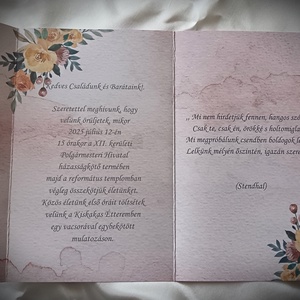 Kedves Családunk és Barátaink!
Szeretettel meghívunk, hogy
velünk örüljetek, mikor
2025 július 12-én
15 órakor a XII. kerületi
Polgármesteri Hivatal
házasságkötő termében
majd a református templomban
végleg összekötjük életünket.
Közös életünk első óráit töltsétek
velünk a Kiskakas Étteremben
egy vacsorával egybekötött
mulatozáson.
,, Mi nem hirdetjük fennen, hangos
Csak te, csak én, örökké s
Mi megpróbálunk csendben boldogok
Lelkünk mélyén őszintén, igazán
(Stendhal)